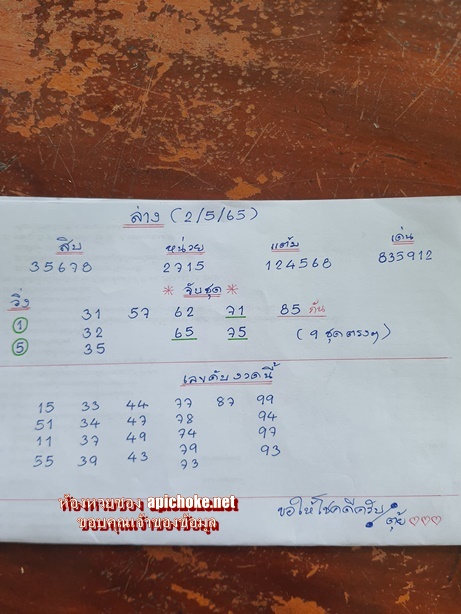 ล่าง (2/5/65)
สิบ หน่วย แต้ม เด่น
35678 2715 124568 835912
* จับชุด *
วิ่ง
31 57 62 71 85 กัน
① 32 65 75 (9 ชุดตรงๆ)
⑤ 35
เลขดับงวดนี้
15 33 44 77 87 99
51 34 47 78 94
11 37 49 74 97
55 39 43 79 93
73
ขอให้โชคดีครับ
ตุ้ย ♡♡♡
ห้องหวยของ apichoke.net
ขอบคุณเจ้าของข้อมูล